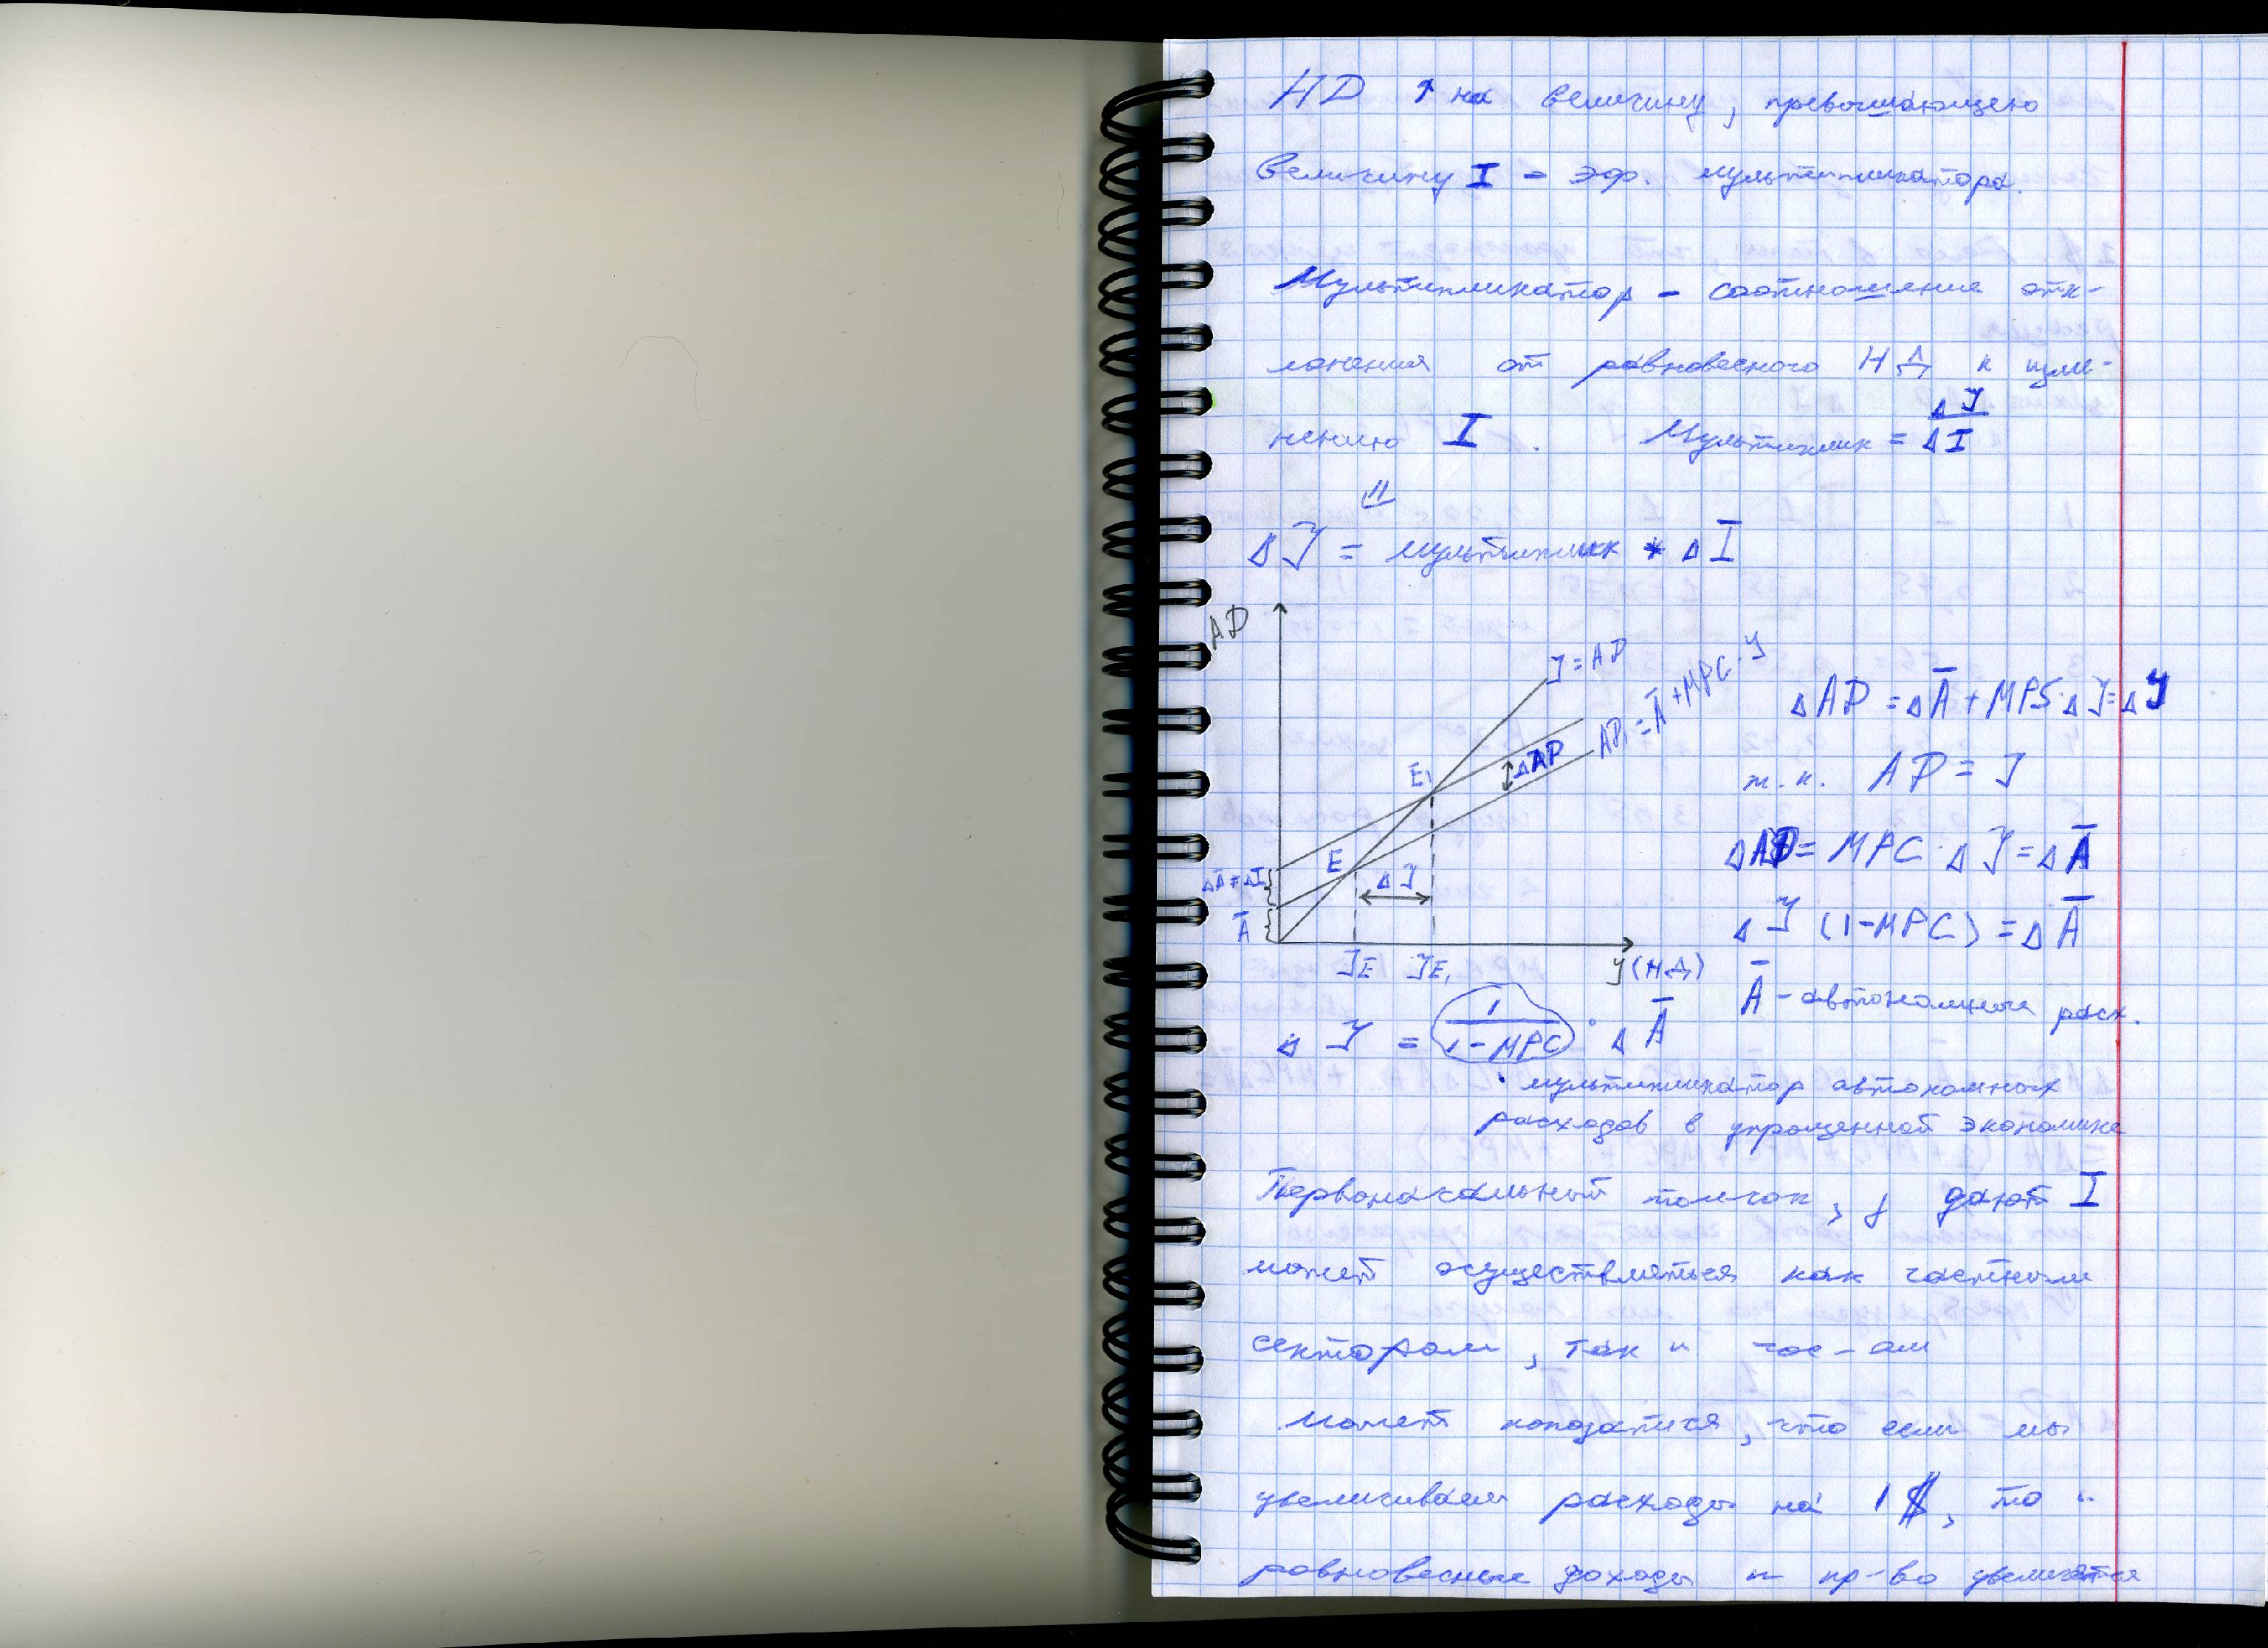 НD ↑ на величину, превышающею
величину I - эф. мультипликатора.
Мультипликатор - соотношение отк-
лонения от равновесного НД к изме-
нению I. Мультиплик = ΔY/ΔI
⇓
ΔY = мультиплик * ΔI
AD
Y = AD
AD₁ = Ā + MPC · Y
ΔAD
E₁
E
ΔĀ = ΔI
ΔY
Ā
YE YE₁ Y (НД)
ΔAD = ΔĀ + MPS · ΔY = ΔY
т.к. AD = Y
ΔAD = MPC · ΔY = ΔĀ
ΔY (1-MPC) = ΔĀ
Ā - автономные расх.
ΔY = 1/(1-MPC) · ΔĀ
мультипликатор автономных
расходов в упрощенной экономике
Первоначальный толчок, дают I
может осуществляться как частным
сектором, так и гос-ом
Может показаться, что если мы
увеличиваем расходы на 1$, то и
равновесные доходы и пр-во увеличатся